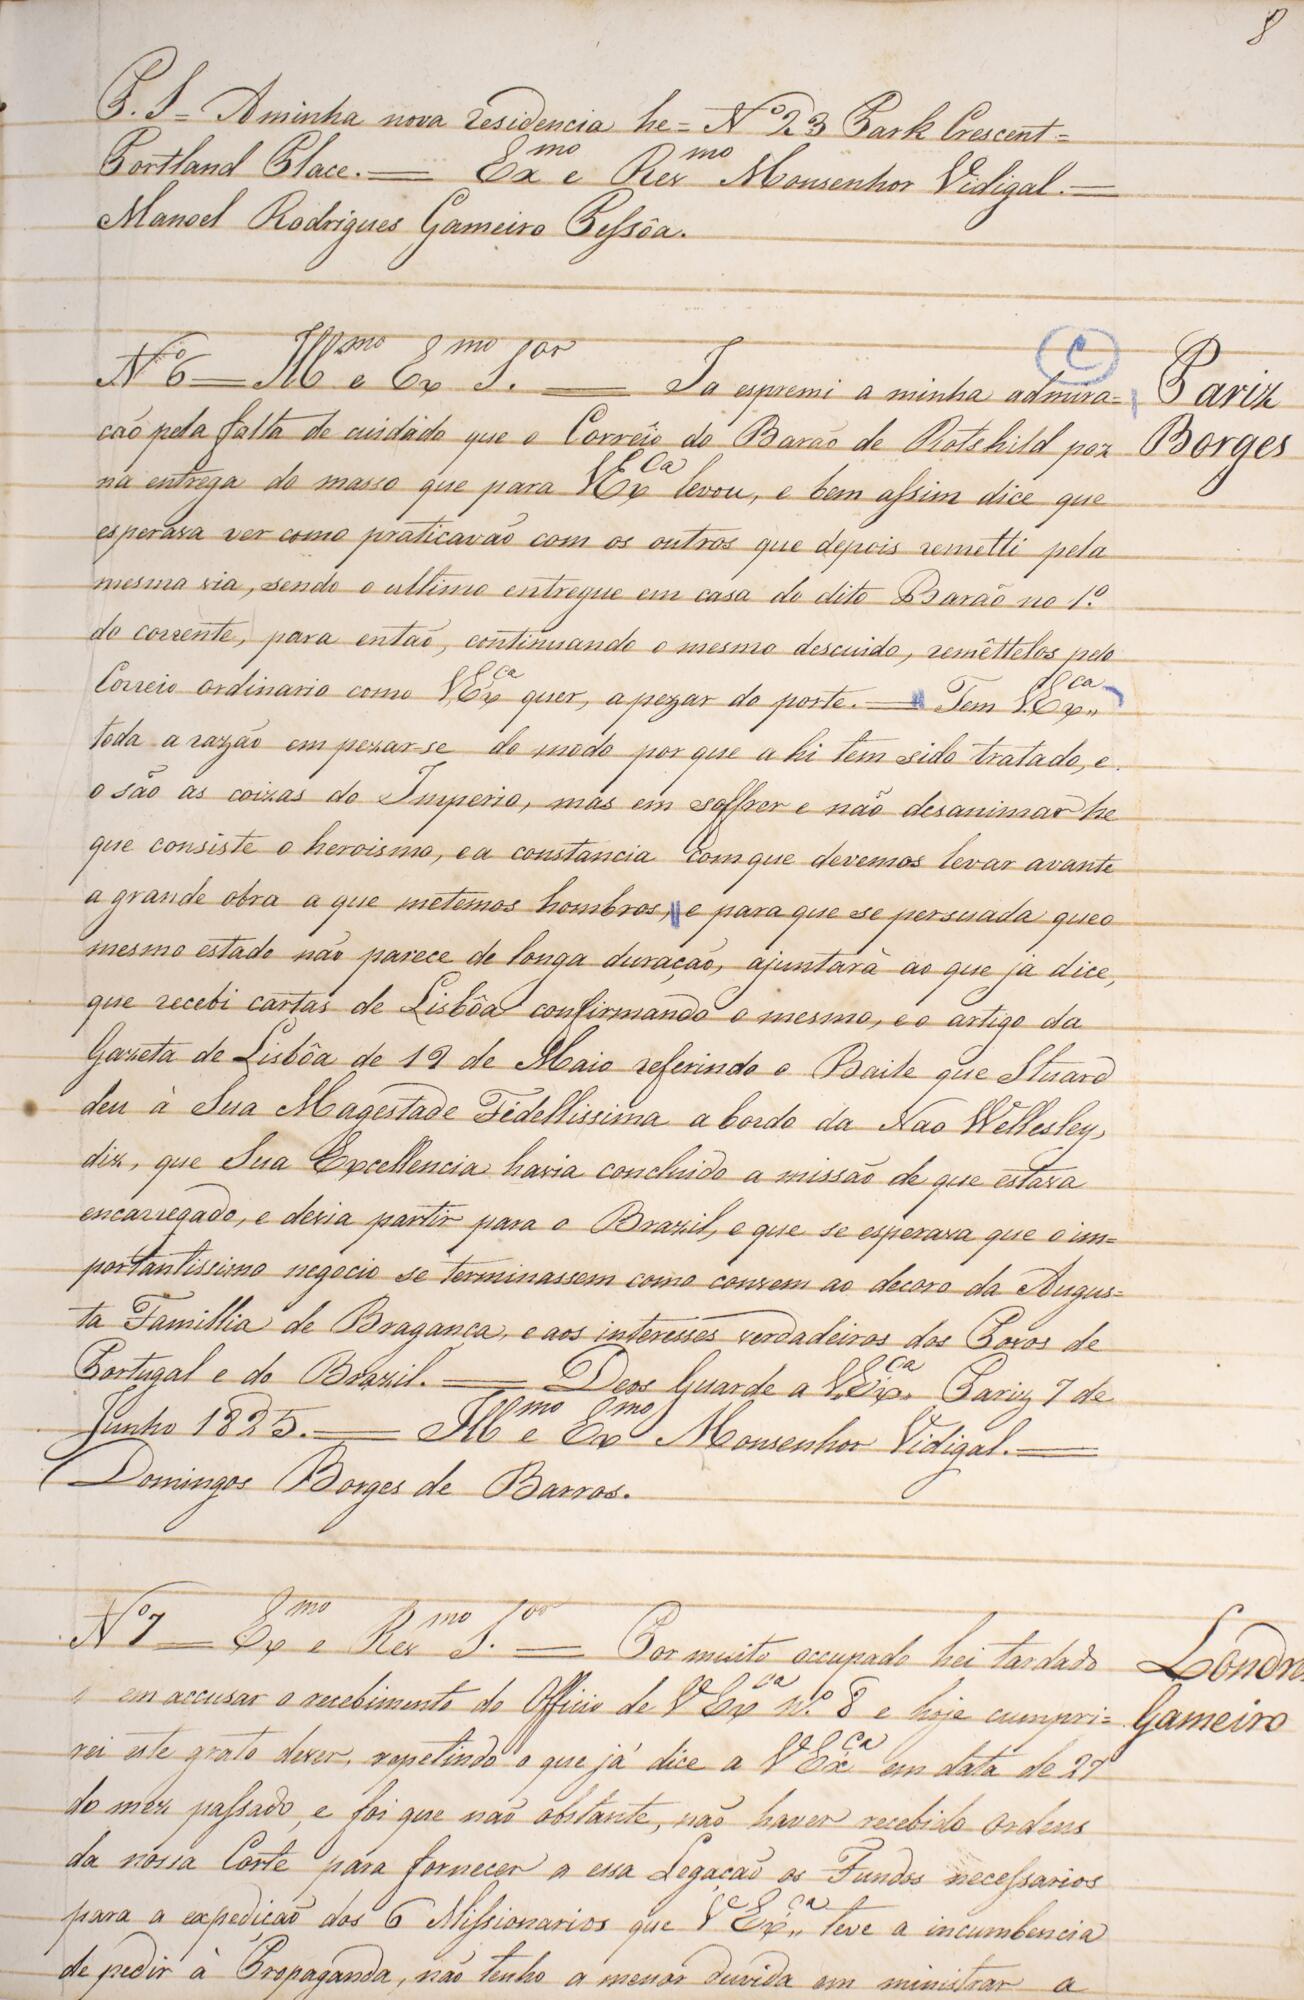 8
P. S = A minha nova residencia he = Nº 23 Park Crescent =
Portland Place. — Exmo e Revmo Monsenhor Vidigal. —
Manoel Rodrigues Gameiro Pessôa.
C
Nº 6 — Illmo e Exmo Sor. — Ja espremi a minha admira=
Pariz
cão pela falta de cuidado que o Corrêio do Barão de Rotshild poz
Borges
na entrega do masso que para VExCa levou, e bem assim dice que
esperava ver como praticavão com os outros que depois remetti pela
mesma via, sendo o ultimo entregue em casa do dito Barão no 1º
do corrente, para então, continuando o mesmo descuido, remêttelos pelo
Correio ordinario como VExca quer, a pezar do porte. — Tem VExca
toda a razão em pezar-se do modo por que a hi tem sido tratado, e
o são as coizas do Imperio, mas em soffrer e não desanimar he
que consiste o heroismo, e a constancia com que devemos levar avante
a grande obra a que metemos hombros, e para que se persuada que o
mesmo estado não parece de longa duração, ajuntarà ao que já dice,
que recebi cartas de Lisbôa confirmando o mesmo, e o artigo da
Gazeta de Lisbôa de 19 de Maio referindo o Baile que Stuard
deu à Sua Magestade Fidellissima a bordo da Nao Wellesley,
diz, que Sua Excellencia havia concluido a missão de que estava
encarregado, e devia partir para o Brazil, e que se esperava que o im=
portantissimo negocio se terminassem como convem ao decoro da Augus=
ta Famillia de Bragança, e aos interesses verdadeiros dos Povos de
Portugal e do Brazil. — Deos Guarde a VExca Pariz 7 de
Junho 1825. — Illmo e Exmo Monsenhor Vidigal. —
Domingos Borges de Barros.
Nº 7 — Exmo e Revmo Sor. — Por muito occupado hei tardado
Londr
em accusar o recebimento do Officio de VExca nº 8 e hoje cumpri=
Gameiro
rei este grato dever, repetindo o que já dice a VExca em data de 27
do mez passado, e foi que não obstante, não haver recebido ordens
da nossa Corte para fornecer a essa Legação os Fundos necessarios
para a expedição dos 6 Missionarios que VExca teve a incumbencia
de pedir à Propaganda, não tenho a menor duvida em ministrar a